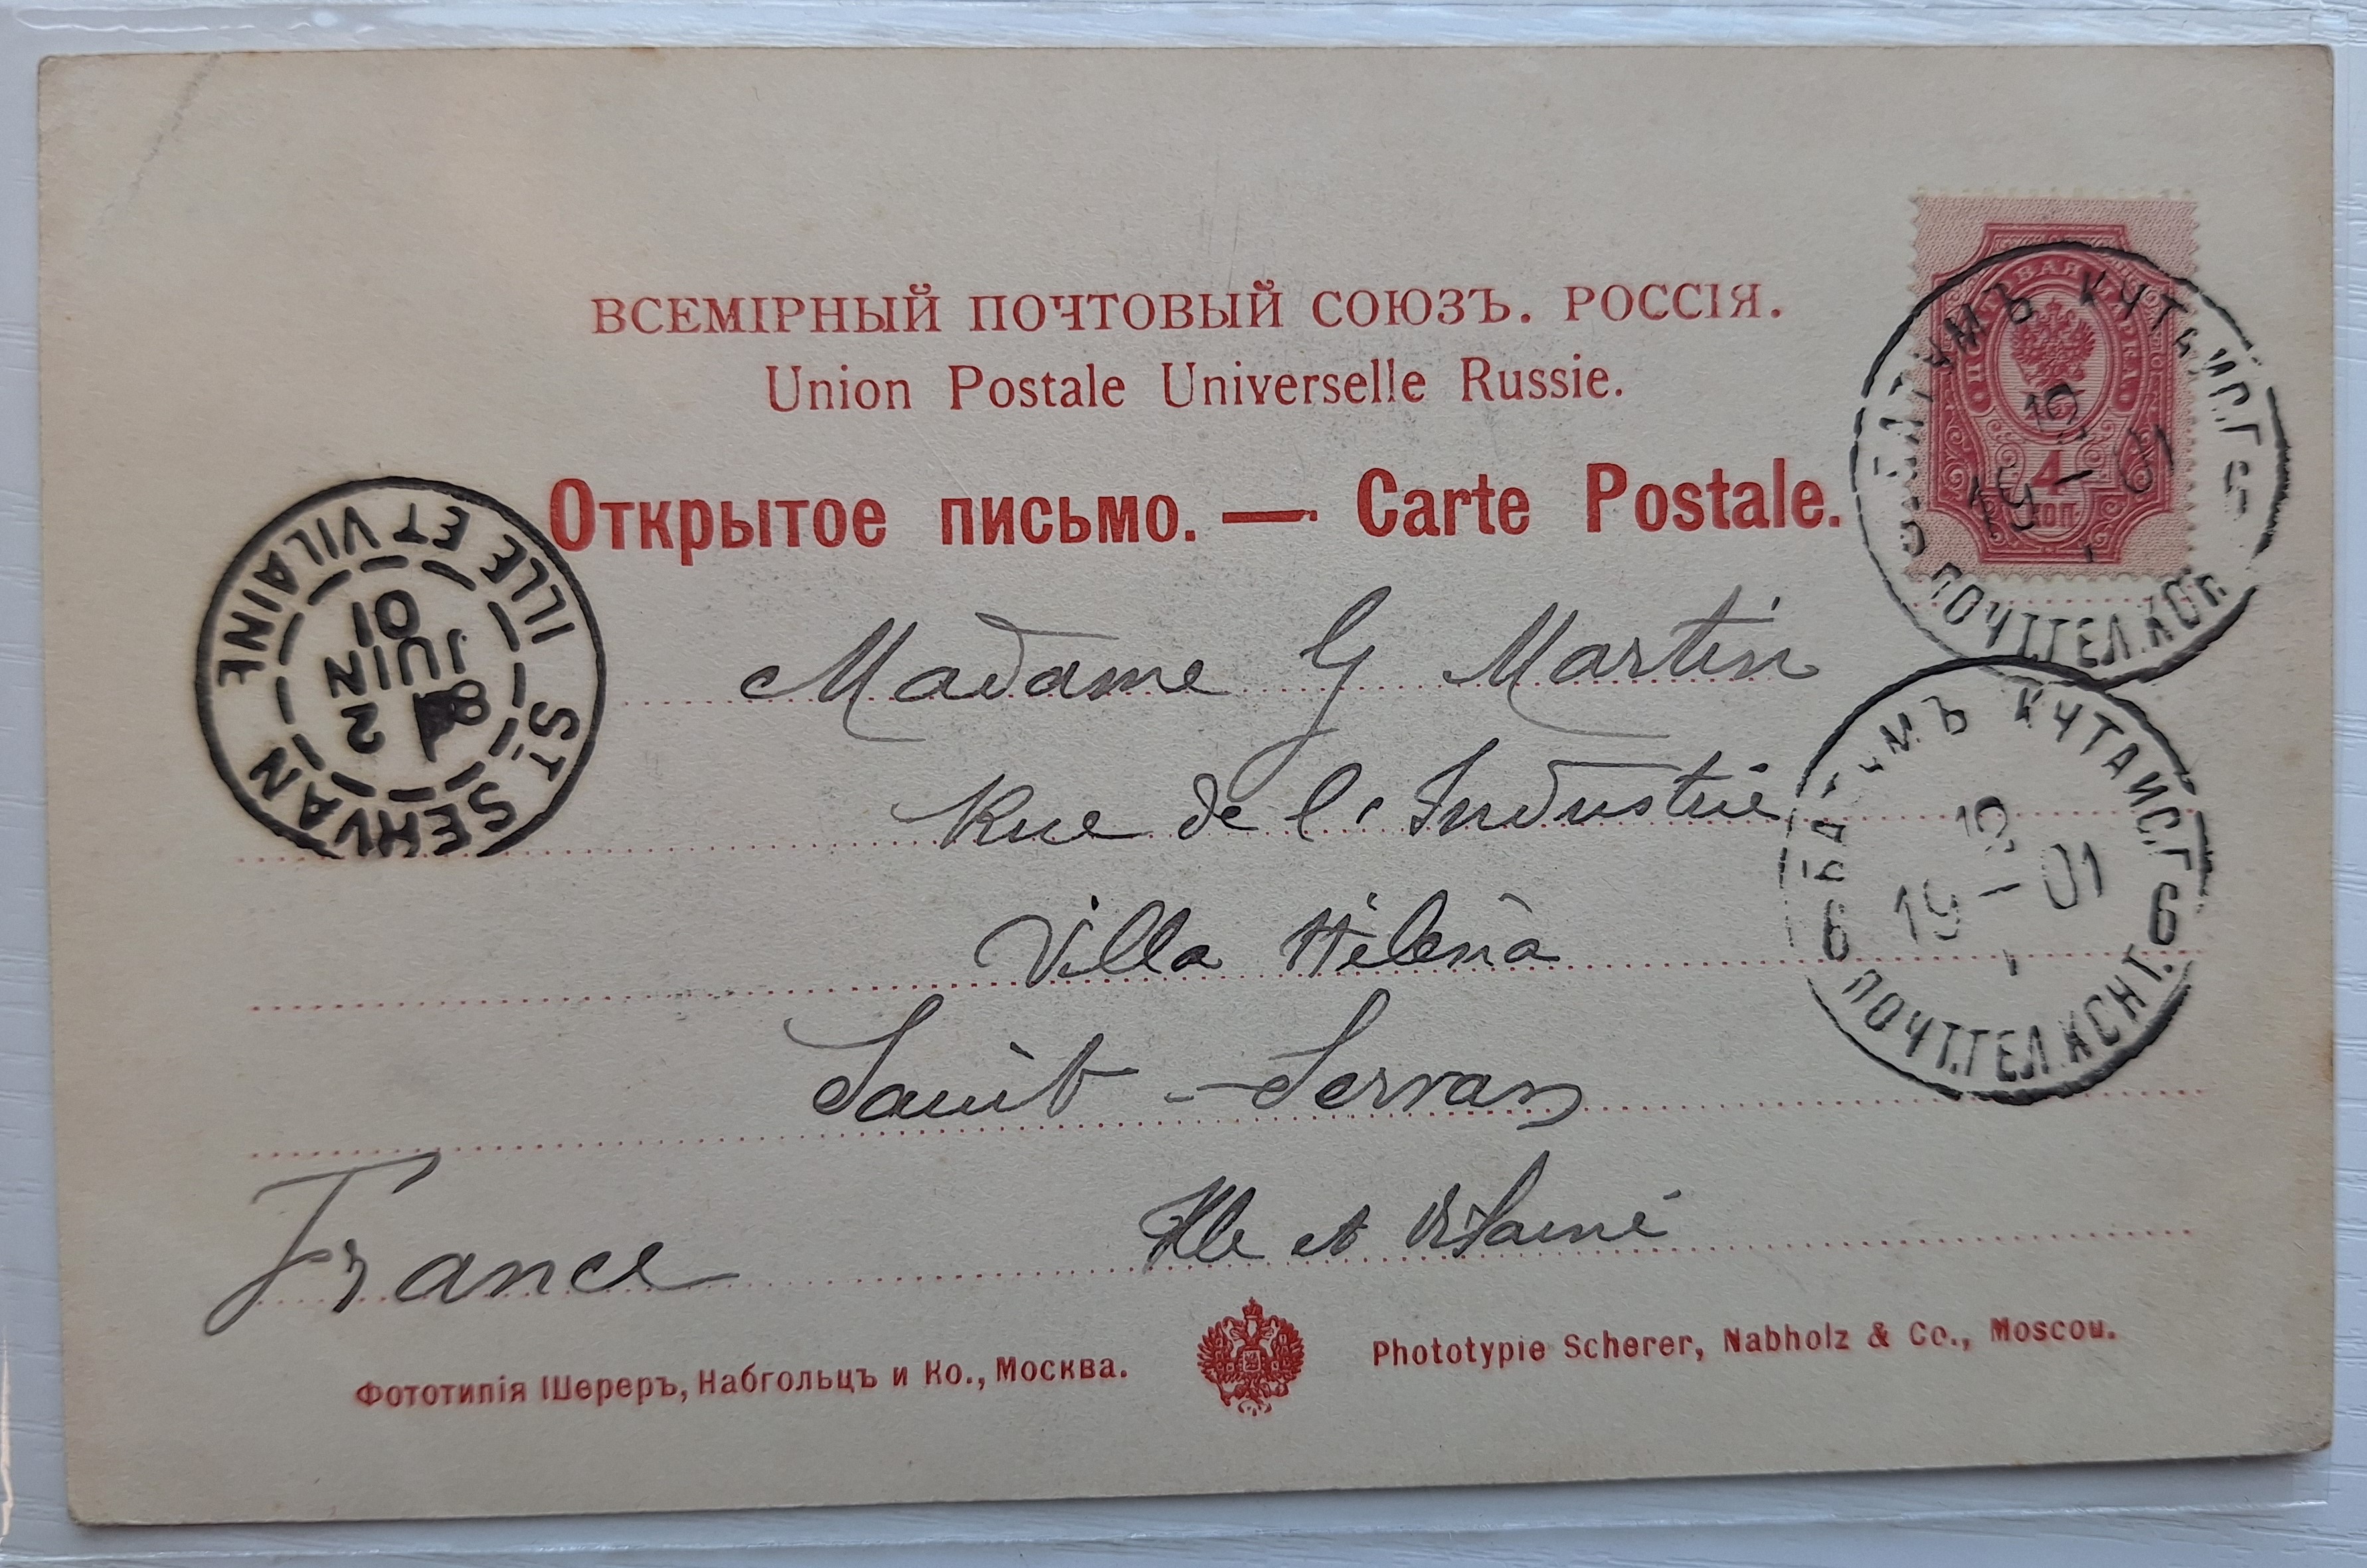 ВСЕМІРНЫЙ ПОЧТОВЫЙ СОЮЗЪ. РОССІЯ.
Union Postale Universelle Russie.
Открытое письмо. — Carte Postale.
4
КОП.
БАТУМЪ КУТ. ИС. Г. 6
19 01
ПОЧТ. ТЕЛ. КОН
ST SERVAN
ILLE ET VILAINE
2
JUIN
01
Madame G Martin
Rue de l'Industrie
БАТУМЪ КУТАИС. Г. 6
19 01
ПОЧТ. ТЕЛ. КОНТ. 6
Villa Héléna
Saint-Servan
Ille et Vilaine
France
Фототипія Шереръ, Набгольцъ и Ко., Москва.
Phototypie Scherer, Nabholz & Co., Moscou.